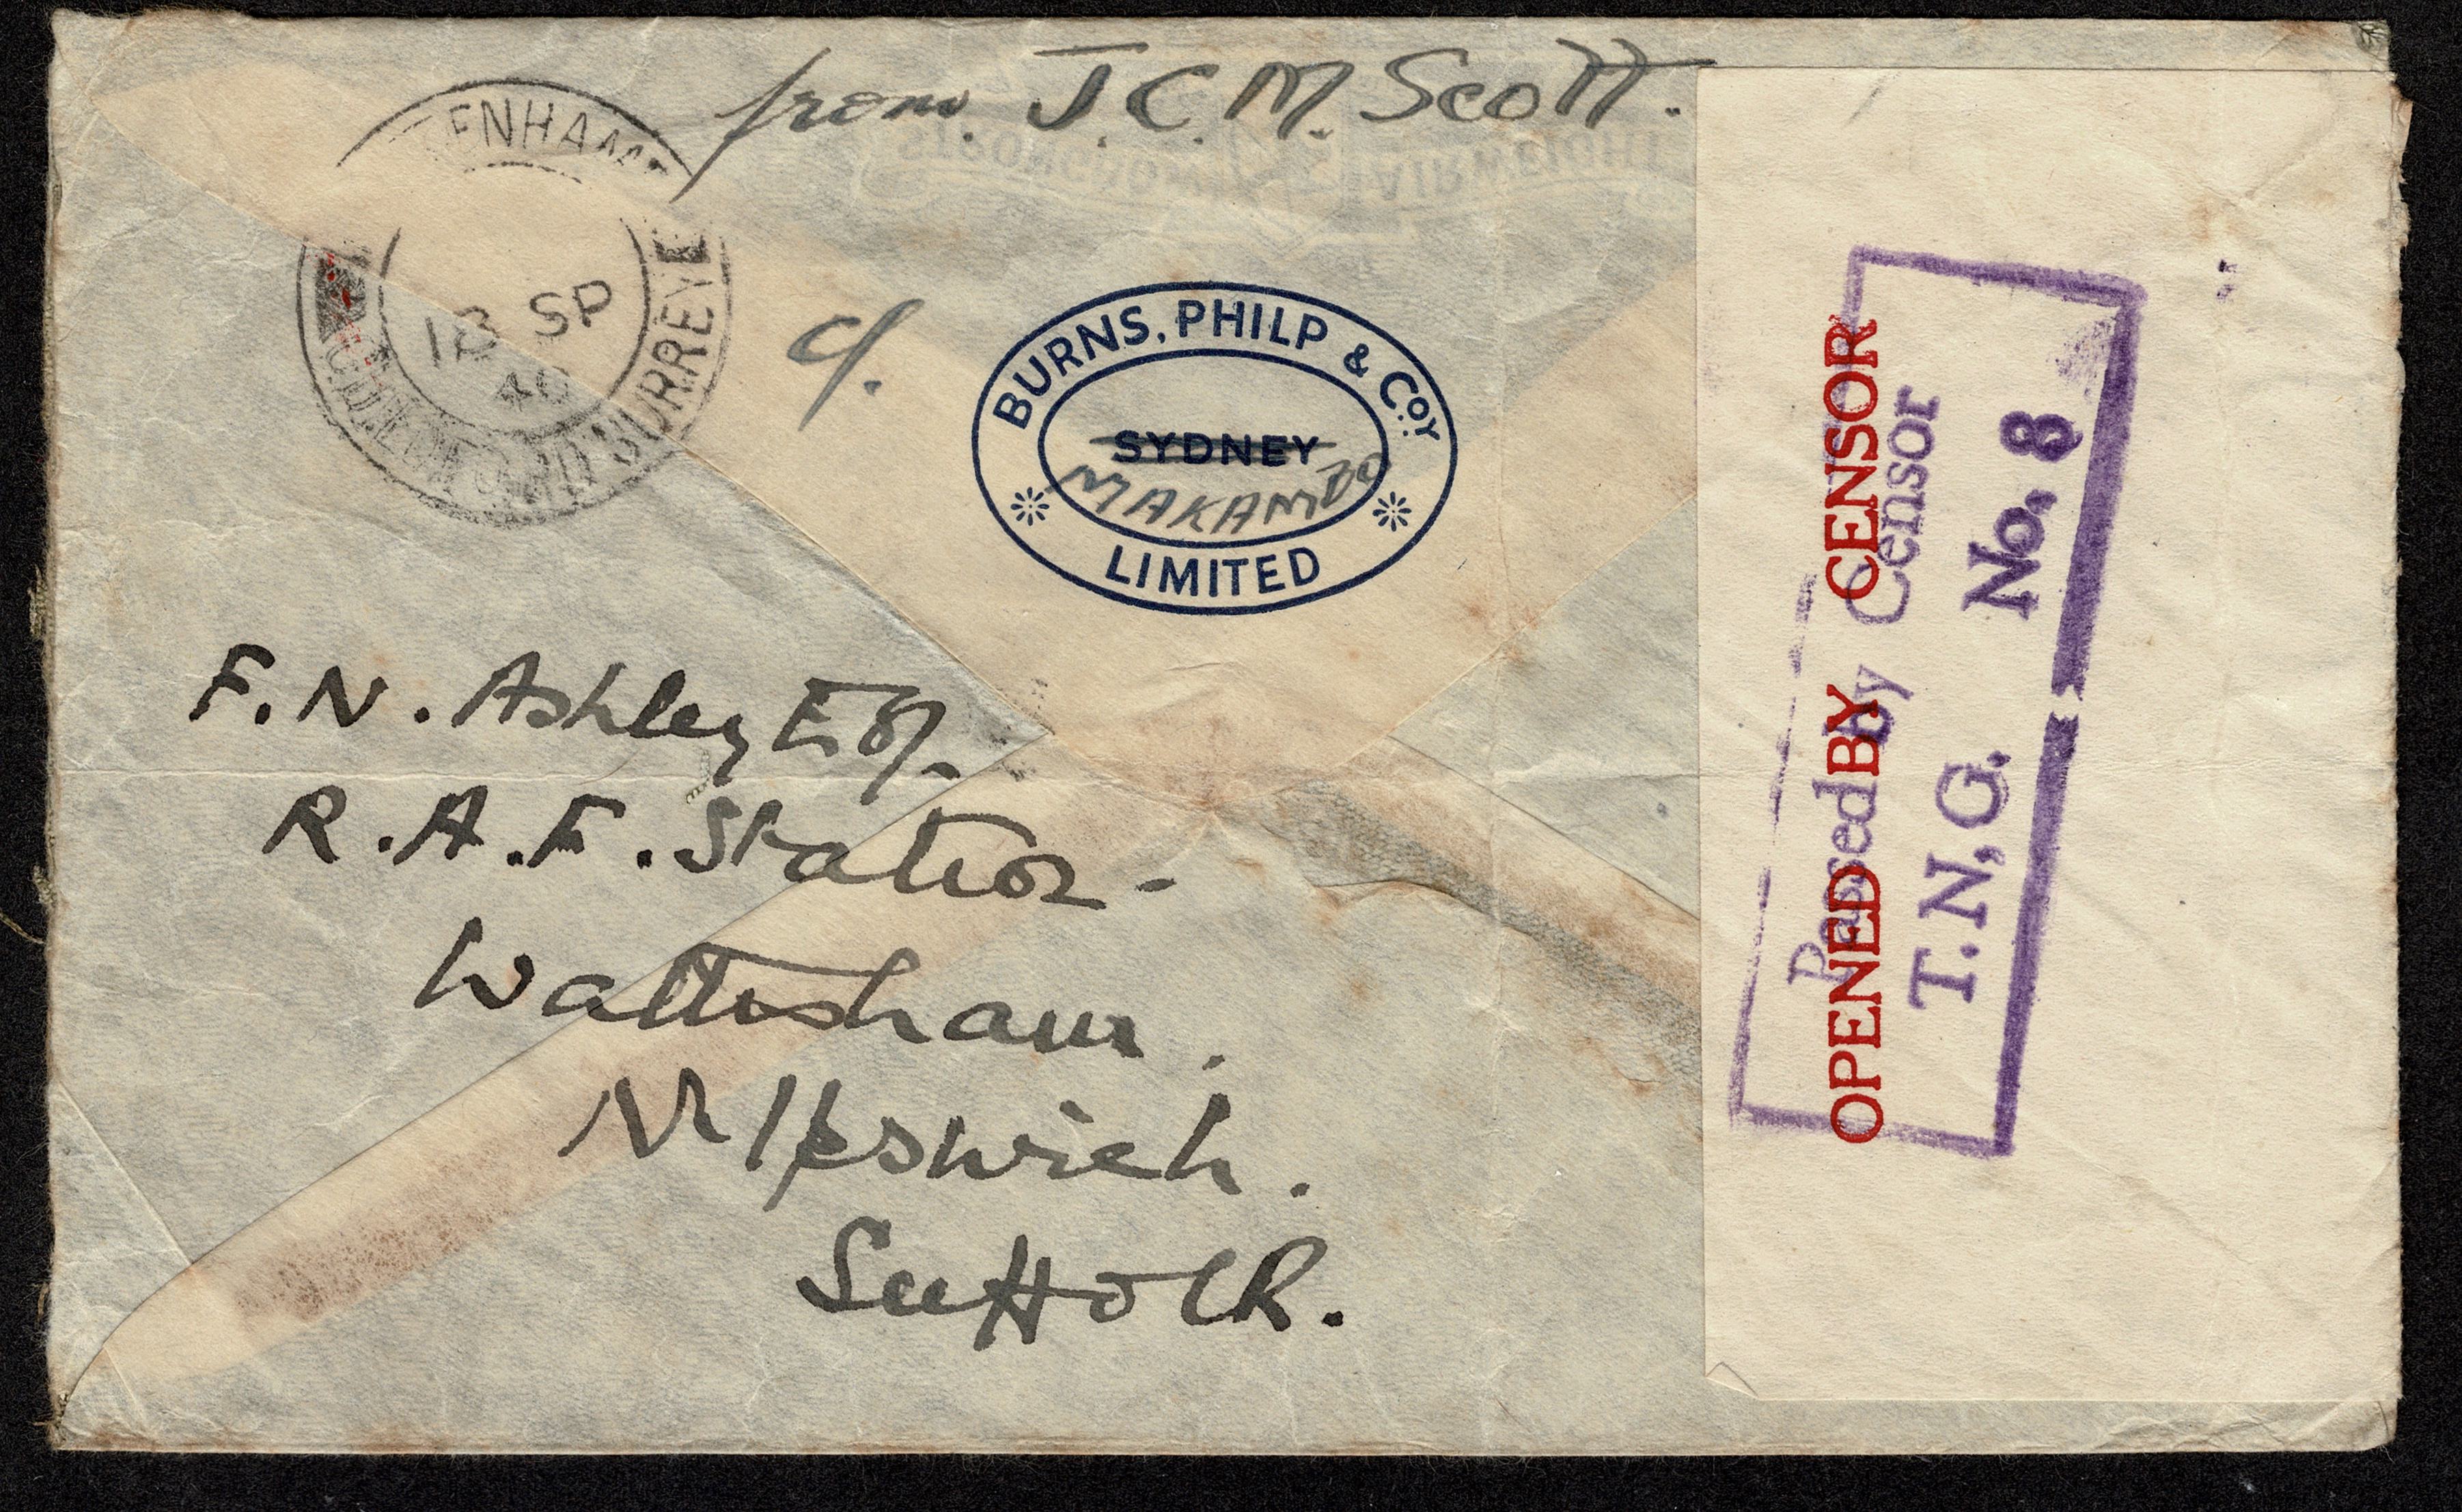 from J.C.M. Scott.
ENHAM
18 SP
40
SURREY
c/.
BURNS, PHILP & Coy.
SYDNEY
MAKAMBO
LIMITED
F.N. Ashley Esq.
R.A.F. Station
Wattisham.
Nr Ipswich.
Suffolk.
OPENED BY CENSOR
Passed by Censor
T.N,G. No. 8